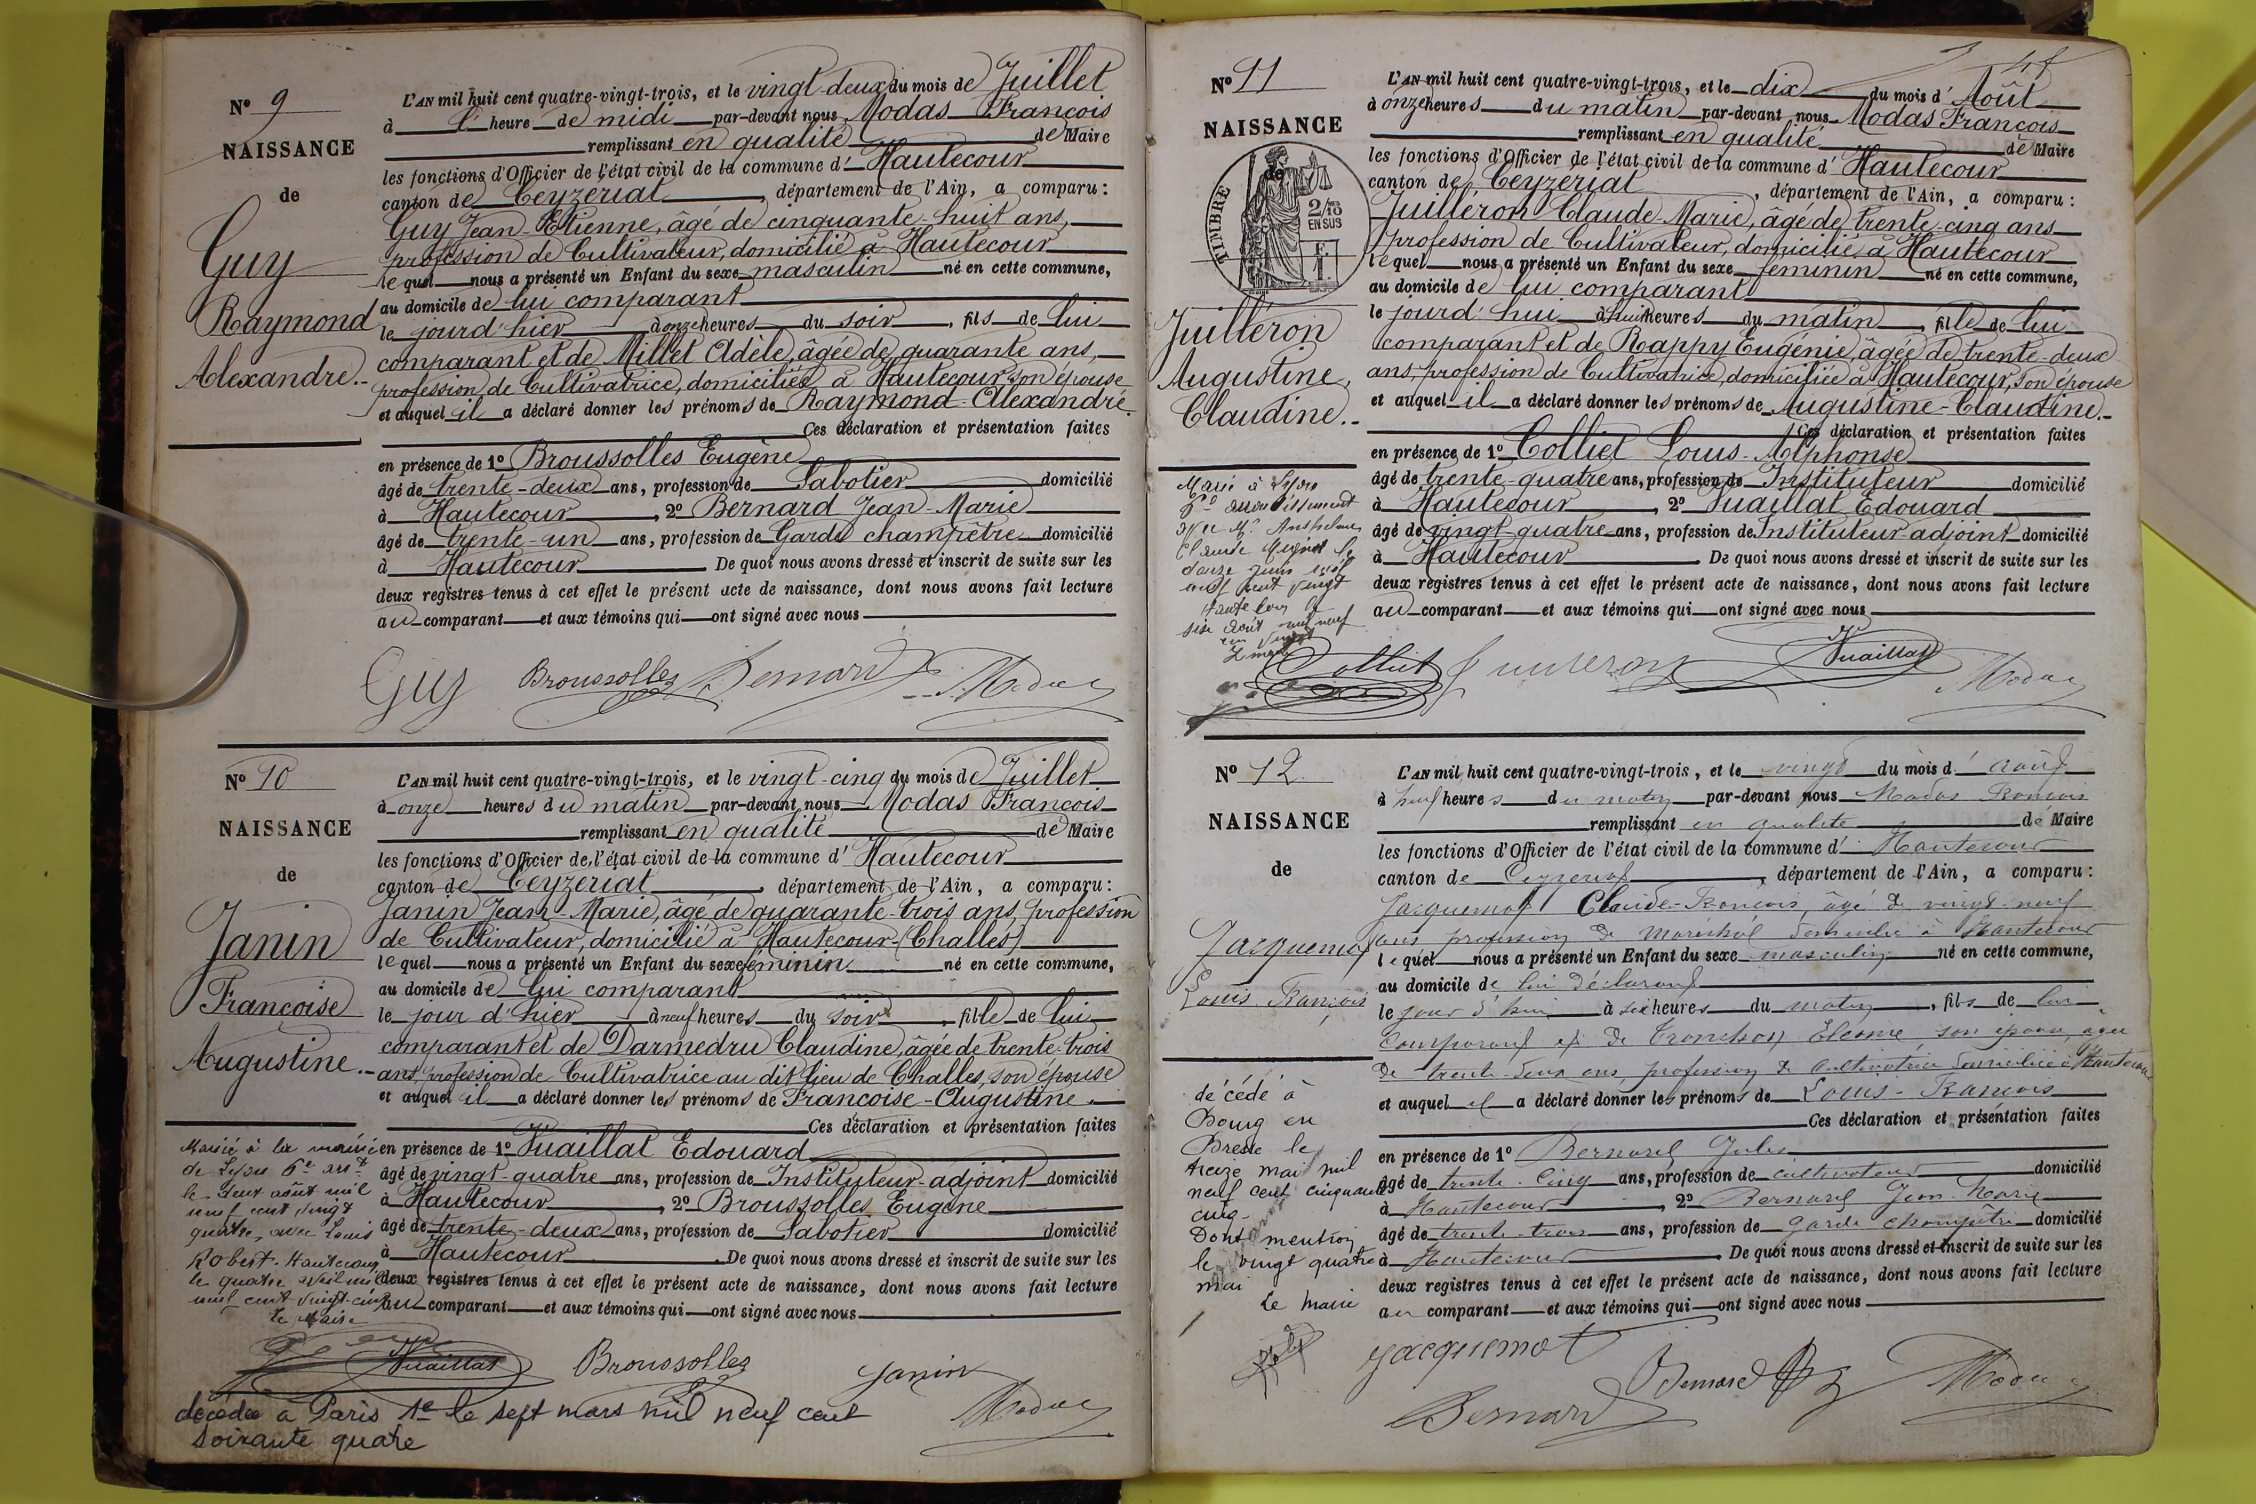 Nº 9
NAISSANCE
de
Guy
Raymond
Alexandre.
L'AN mil huit cent quatre-vingt-trois, et le vingt-deux du mois de Juillet
à l' heure de midi par-devant nous Modas François
remplissant en qualité de Maire
les fonctions d'Officier de l'état civil de la commune d' Hautecour
canton de Ceyzériat, département de l'Ain, a comparu:
Guy Jean-Etienne, âgé de cinquante-huit ans,
profession de Cultivateur, domicilié à Hautecour
lequel nous a présenté un Enfant du sexe masculin né en cette commune,
au domicile de lui comparant
le jourd'hier à onze heures du soir, fils de lui
comparant et de Millet Adèle, âgée de quarante ans,
profession de Cultivatrice, domiciliée à Hautecour son épouse
et auquel il a déclaré donner les prénoms de Raymond-Alexandre.
Ces déclaration et présentation faites
en présence de 1º Broussolles Eugène
âgé de trente-deux ans, profession de Sabotier domicilié
à Hautecour, 2º Bernard Jean-Marie
âgé de trente-un ans, profession de Garde champêtre domicilié
à Hautecour De quoi nous avons dressé et inscrit de suite sur les
deux registres tenus à cet effet le présent acte de naissance, dont nous avons fait lecture
au comparant et aux témoins qui ont signé avec nous
Guy Broussolles Bernard Modas
Nº 10
NAISSANCE
de
Janin
Françoise
Augustine.
L'AN mil huit cent quatre-vingt-trois, et le vingt-cinq du mois de Juillet
à onze heures du matin par-devant nous Modas François
remplissant en qualité de Maire
les fonctions d'Officier de l'état civil de la commune d' Hautecour
canton de Ceyzériat, département de l'Ain, a comparu:
Janin Jean-Marie, âgé de quarante-trois ans, profession
de Cultivateur, domicilié à Hautecour (Challes)
lequel nous a présenté un Enfant du sexe féminin né en cette commune,
au domicile de lui comparant
le jour d'hier à neuf heures du soir, fille de lui
comparant et de Darmedru Claudine, âgée de trente-trois
ans, profession de Cultivatrice au dit lieu de Challes, son épouse
et auquel il a déclaré donner les prénoms de Françoise-Augustine.
Ces déclaration et présentation faites
en présence de 1º Vuaillat Edouard
âgé de vingt-quatre ans, profession de Instituteur-adjoint domicilié
à Hautecour, 2º Broussolles Eugène
âgé de trente-deux ans, profession de Sabotier domicilié
à Hautecour De quoi nous avons dressé et inscrit de suite sur les
deux registres tenus à cet effet le présent acte de naissance, dont nous avons fait lecture
au comparant et aux témoins qui ont signé avec nous
Mariée à la mairie
de Lyon 6e arrt
le deux août mil
neuf cent vingt
quatre, avec Louis
Robert. Hautecour
le quatre avril mil
neuf cent vingt-cinq
Le Maire
Vuaillat Broussolles Janin Modas
décédée à Paris 1e le sept mars mil neuf cent
soixante quatre
Nº 11
NAISSANCE
de
TIMBRE
2/10
EN SUS
Juilléron
Augustine
Claudine.
L'AN mil huit cent quatre-vingt-trois, et le dix du mois d' Août
à onze heures du matin par-devant nous Modas François
remplissant en qualité de Maire
les fonctions d'Officier de l'état civil de la commune d' Hautecour
canton de Ceyzériat, département de l'Ain, a comparu:
Juilléron Claude-Marie, âgé de trente-cinq ans
profession de Cultivateur, domicilié à Hautecour
lequel nous a présenté un Enfant du sexe féminin né en cette commune,
au domicile de lui comparant
le jourd'hui à huit heures du matin, fille de lui
comparant et de Rappy Eugénie, âgée de trente-deux
ans, profession de Cultivatrice, domiciliée à Hautecour, son épouse
et auquel il a déclaré donner les prénoms de Augustine-Claudine.
Ces déclaration et présentation faites
en présence de 1º Colliet Louis-Alphonse
âgé de trente-quatre ans, profession de Instituteur domicilié
à Hautecour, 2º Vuaillat Edouard
âgé de vingt-quatre ans, profession de Instituteur-adjoint domicilié
à Hautecour De quoi nous avons dressé et inscrit de suite sur les
deux registres tenus à cet effet le présent acte de naissance, dont nous avons fait lecture
au comparant et aux témoins qui ont signé avec nous
Marié à Lyon
arrondissement
avec Mr Anthelme
Claude le
juin mil
neuf cent vingt
Hautecour le
août mil neuf
cent vingt
Colliet Juilleron Vuaillat Modas
Nº 12
NAISSANCE
de
Jacquemot
Louis François
L'AN mil huit cent quatre-vingt-trois, et le vingt du mois d' août
à neuf heures du matin par-devant nous Modas François
remplissant en qualité de Maire
les fonctions d'Officier de l'état civil de la commune d' Hautecour
canton de Ceyzeriat, département de l'Ain, a comparu:
Jacquemot Claude-François, âgé de vingt-neuf
ans profession de Maréchal domicilié à Hautecour
lequel nous a présenté un Enfant du sexe masculin né en cette commune,
au domicile de lui déclarant
le jour d'hui à six heures du matin, fils de lui
comparant et de Tronchon son épouse, âgée
de trente-deux ans, profession de cultivatrice domiciliée à Hautecour
et auquel il a déclaré donner les prénoms de Louis-François
Ces déclaration et présentation faites
en présence de 1º Bernard Jules
âgé de trente-cinq ans, profession de cultivateur domicilié
à Hautecour, 2º Bernard Jean-Marie
âgé de trente-trois ans, profession de garde champêtre domicilié
à Hautecour De quoi nous avons dressé et inscrit de suite sur les
deux registres tenus à cet effet le présent acte de naissance, dont nous avons fait lecture
au comparant et aux témoins qui ont signé avec nous
décédé à
Bourg en
Bresse le
treize mai mil
neuf cent cinquante
cinq
Dont mention
le vingt quatre
mai
Le maire
Jacquemot Bernard
Bernard Modas